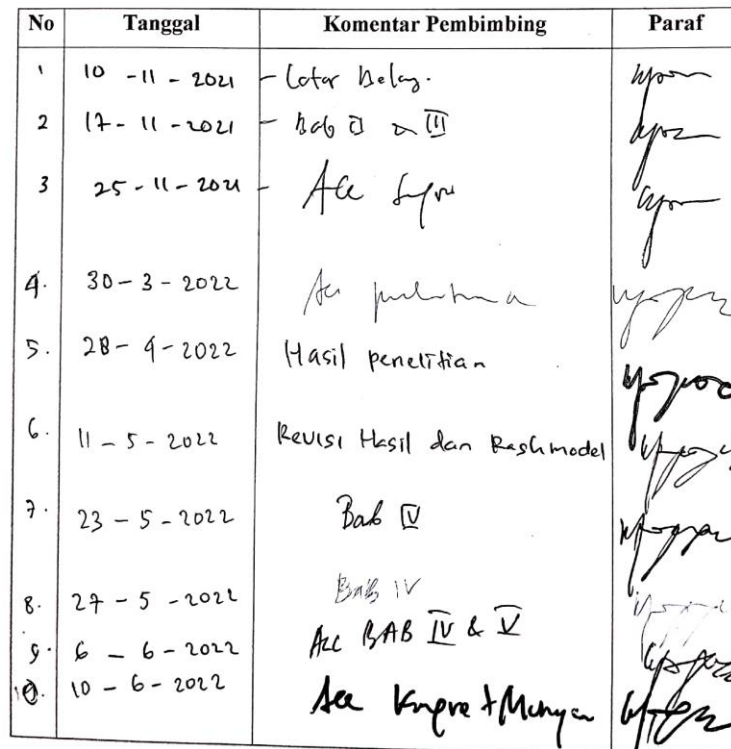 No Tanggal Komentar Pembimbing Paraf
1 10 - 11 - 2021 -
2 17 - 11 - 2021 - Bab II III
3 25 - 11 - 2021 - Acc
4. 30 - 3 - 2022 Acc
5. 28 - 4 - 2022 Hasil penelitian
6. 11 - 5 - 2022 Revisi Hasil dan Rashmodel
7. 23 - 5 - 2022 Bab
8. 27 - 5 - 2022 BAB IV
9. 6 - 6 - 2022 Acc BAB IV & V
10. 10 - 6 - 2022 Acc